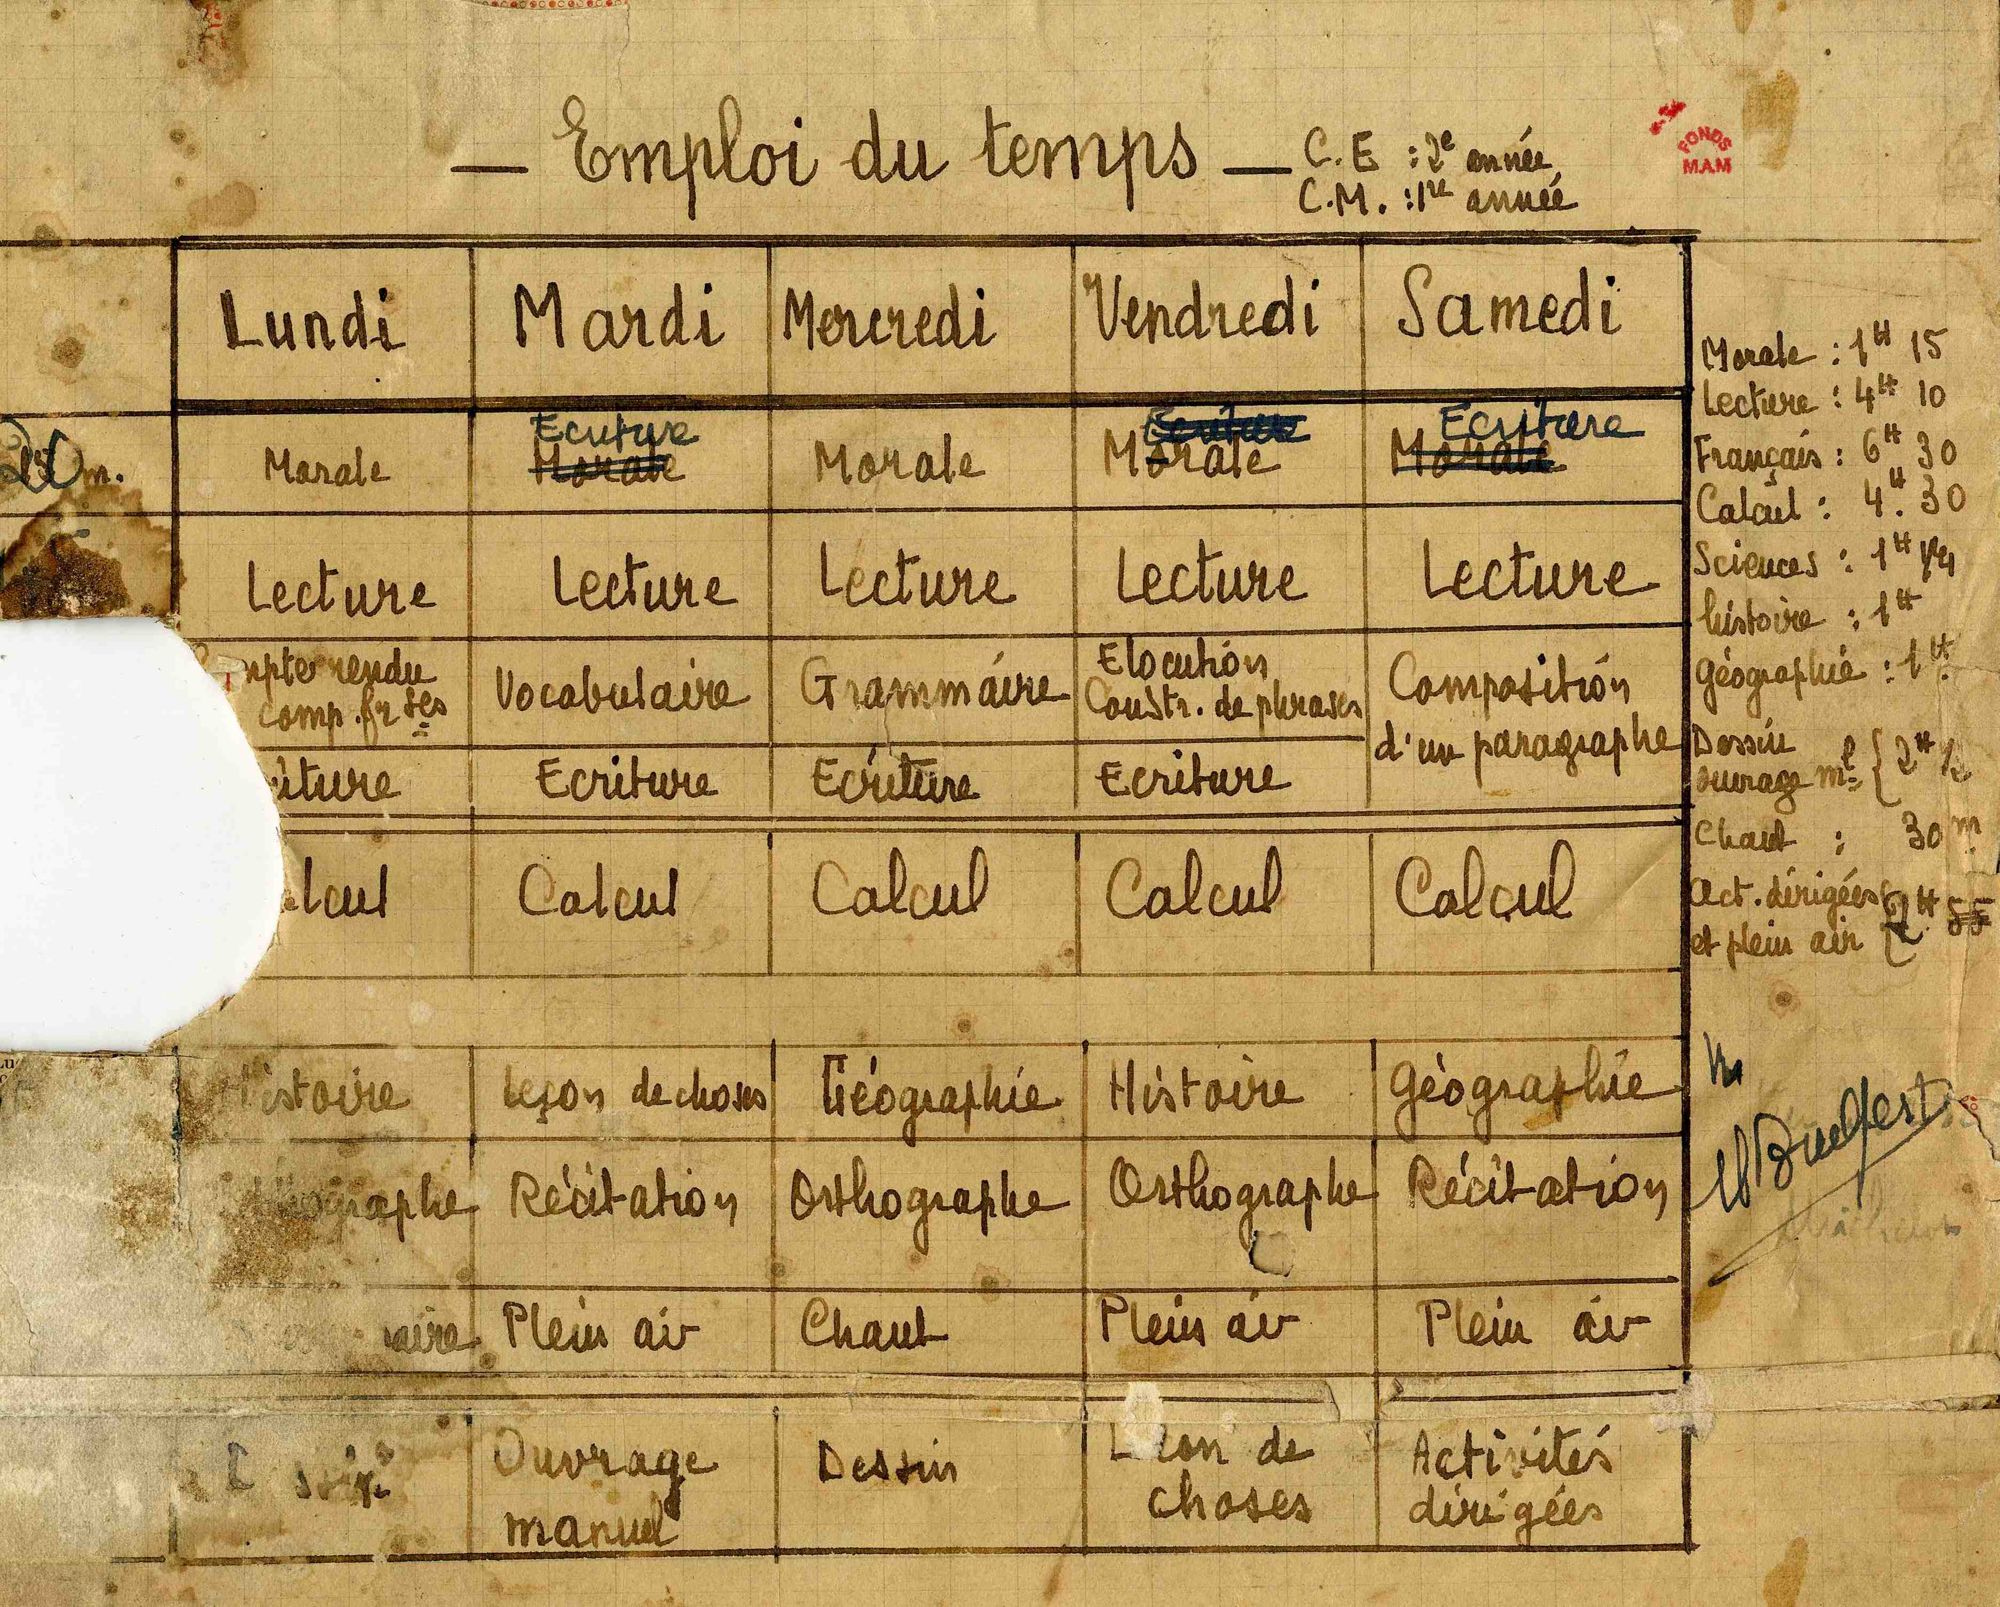 — Emploi du temps —
C.E : 2e année
C.M. : 1re année
FONDS
M.A.M
Lundi Mardi Mercredi Vendredi Samedi
Ecriture Ecriture Ecriture
m. Morale Morale Morale Morale Morale
Lecture Lecture Lecture Lecture Lecture
rendu Vocabulaire Grammaire Elocution Composition
comp. frses Constr. de phrases d'un paragraphe
iture Ecriture Ecriture Ecriture
lcul Calcul Calcul Calcul Calcul
istoire Leçon de choses Géographie Histoire Géographie
ographe Récitation Orthographe Orthographe Récitation
aire Plein air Chant Plein air Plein air
Ouvrage Dessin on de Activités
manuel choses dirigées
Morale : 1H 15
Lecture : 4H 10
Français : 6H 30
Calcul : 4H. 30
Sciences : 1H 1/4
histoire : 1H
géographie : 1H.
Dessin
ouvrage mel { 2H 1/2
Chant : 30m
Act. dirigées
et plein air { 2H 55